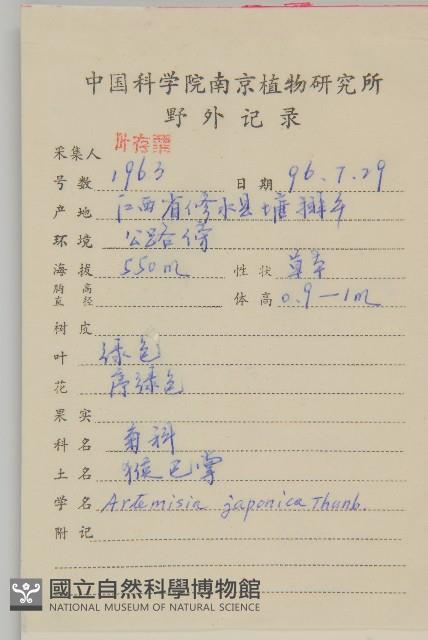 中国科学院南京植物研究所
野外记录
采集人 叶存粟
号数 1963 日期 96.7.29
产地 江西省修水县
环境 公路傍
海拔 550m 性状 草本
胸高直径 体高 0.9—1m
树皮
叶 绿色
花 序绿色
果实
科名 菊科
土名 猴巴掌
学名 Artemisia japonica Thunb.
附记
國立自然科學博物館
NATIONAL MUSEUM OF NATURAL SCIENCE